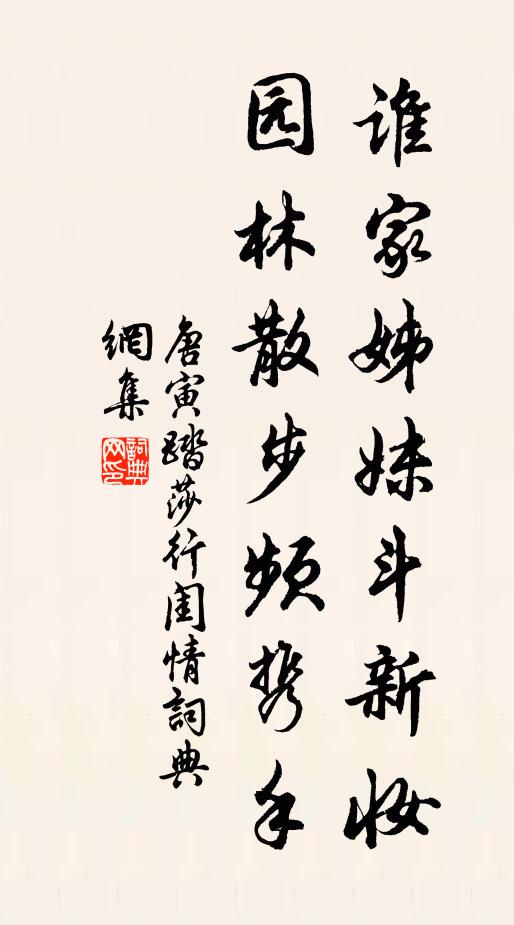 谁家姊妹斗新妆
园林散步频携手
唐寅踏莎行闺情詞典
網集
詞典
网印